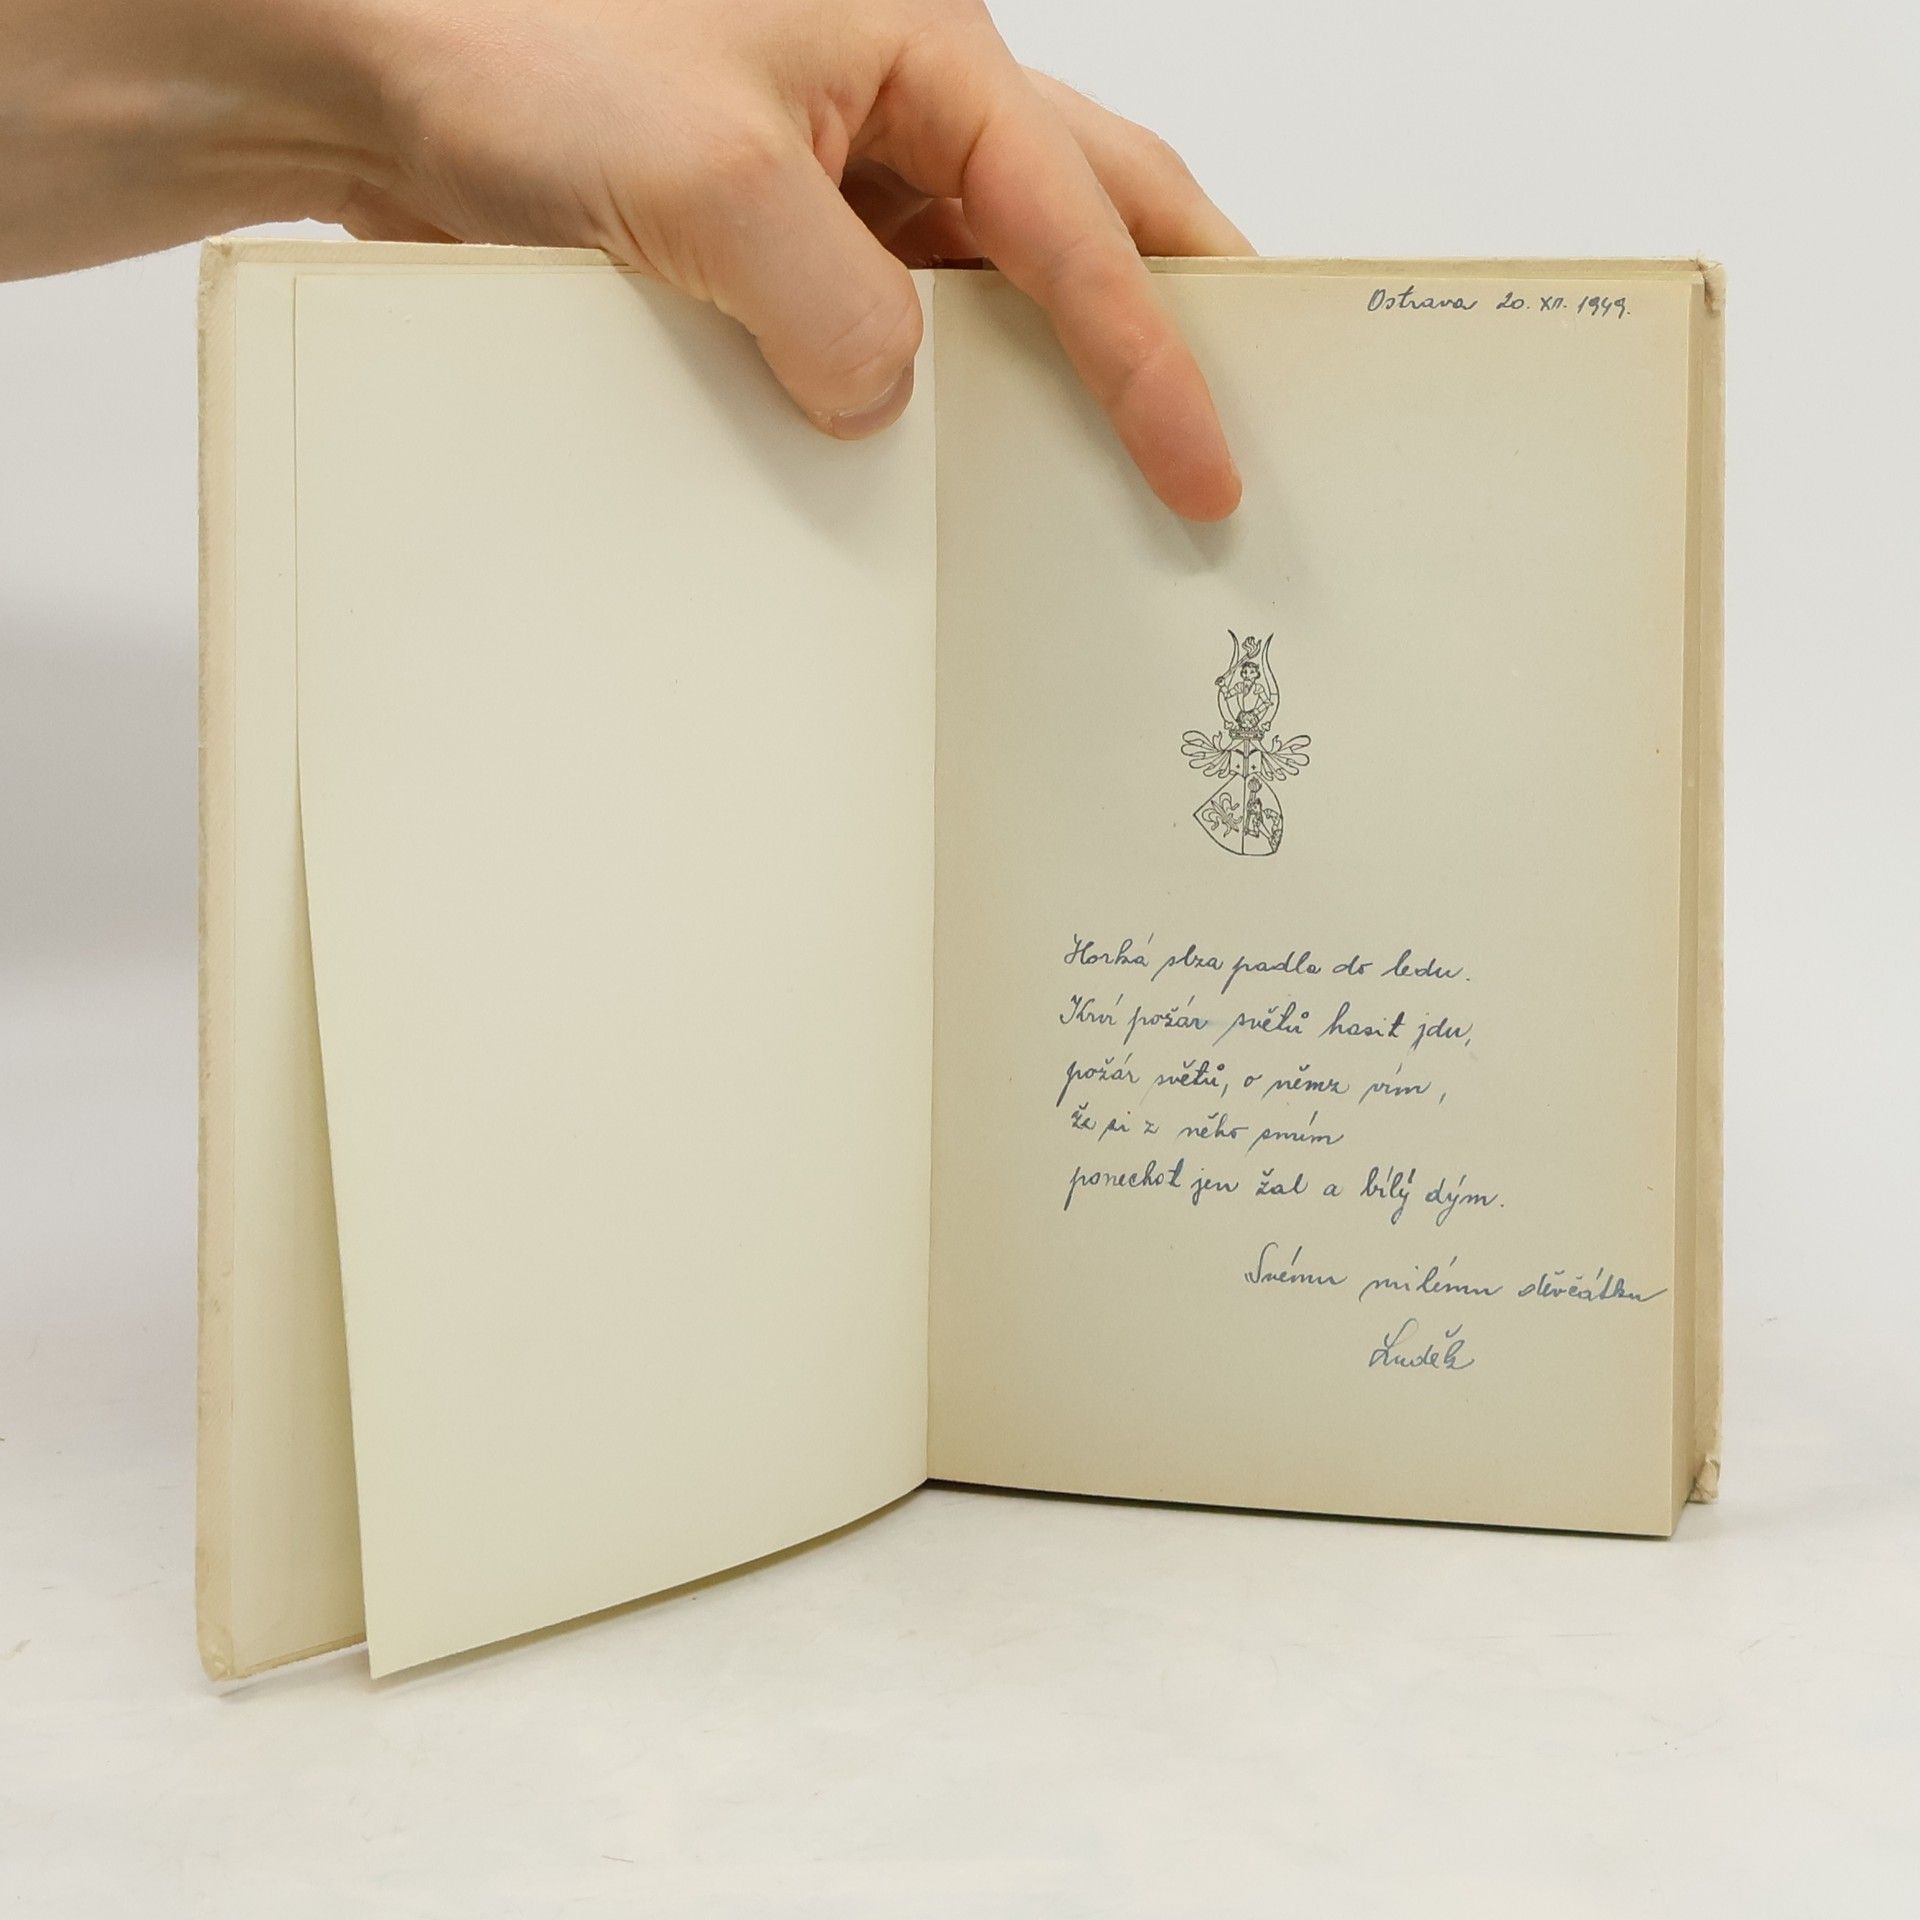 Ostrava 20. XII. 1949.
Horká slza padla do ledu.
Krví požár světů hasit jdu,
požár světů, o němz vím,
že si z něho smím
ponechat jen žal a bílý dým.
Svému milému děvčátku
Luděk